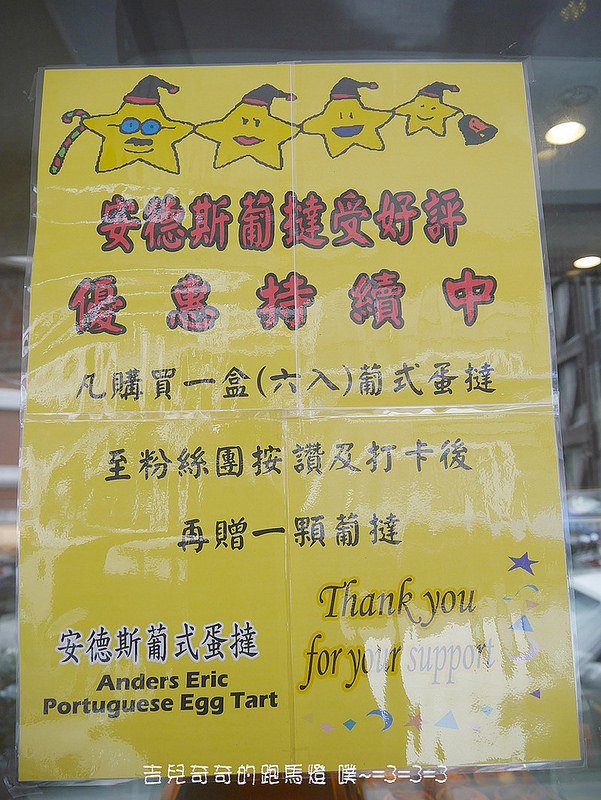 安德斯葡撻受好評
優惠持續中
凡購買一盒(六入)葡式蛋撻
至粉絲團按讚及打卡後
再贈一顆葡撻
安德斯葡式蛋撻
Anders Eric
Portuguese Egg Tart
Thank you
for your support
吉兒奇奇的跑馬燈 噗~=3=3=3